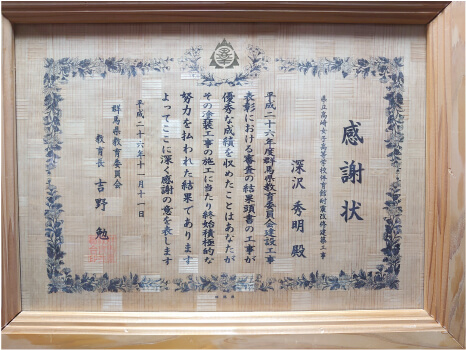 感謝状
県立高崎女子高等学校体育館耐震改修建築工事
深沢 秀明 殿
平成二十六年度群馬県教育委員会建設工事
表彰における審査の結果頭書の工事が
優秀な成績を収めたことはあなたが
その塗装工事の施工に当たり終始積極的な
努力を払われた結果であります
よってここに深く感謝の意を表します
平成二十六年十一月十一日
群馬県教育委員会
教育長 吉野 勉